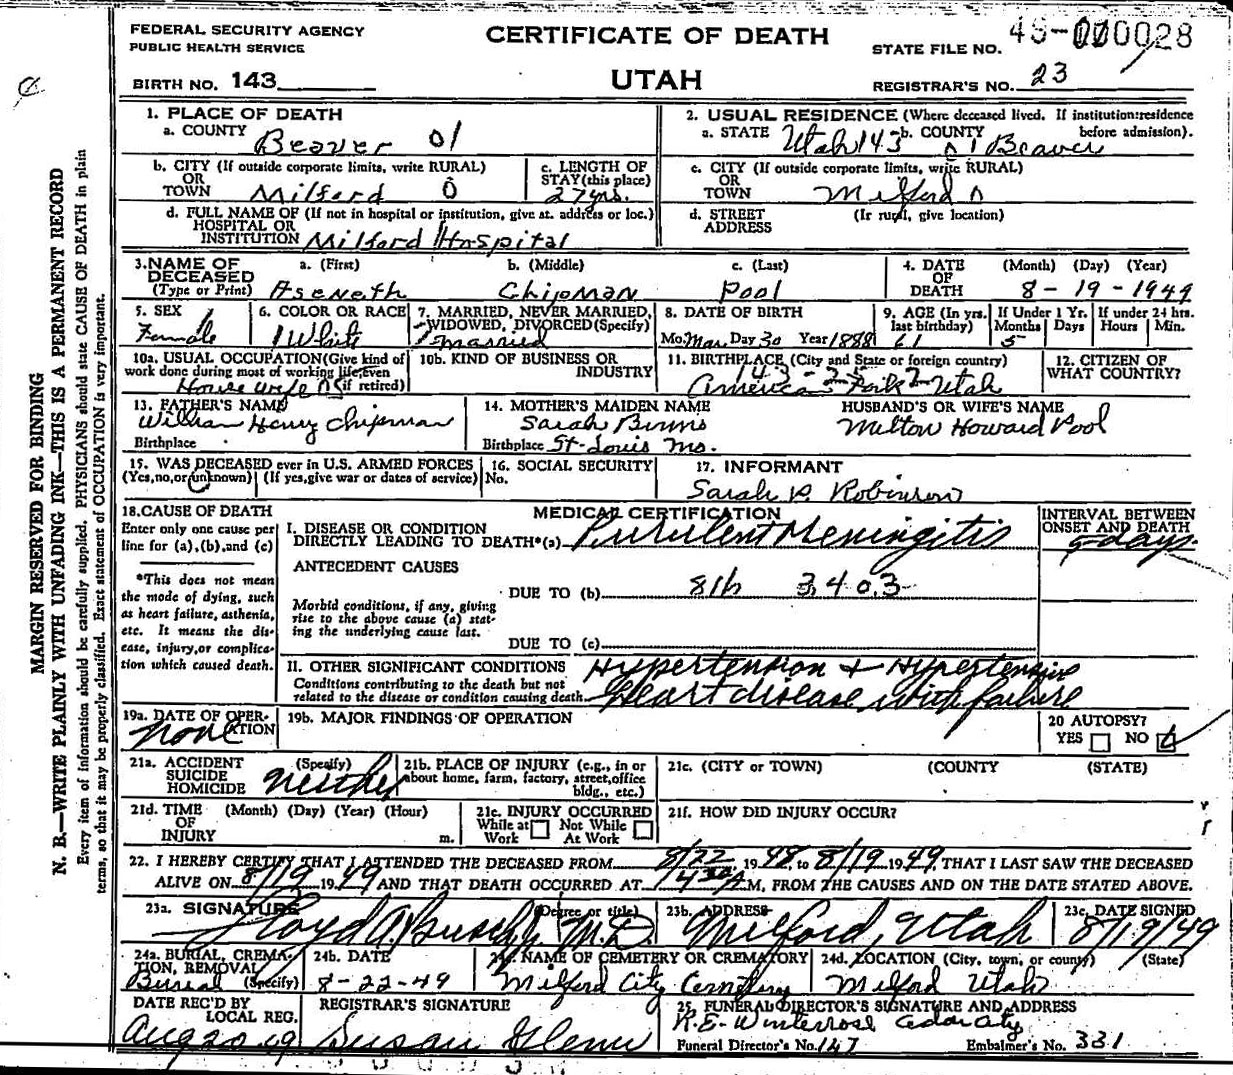 FEDERAL SECURITY AGENCY
PUBLIC HEALTH SERVICE
CERTIFICATE OF DEATH
STATE FILE NO.
BIRTH NO. 143
UTAH
REGISTRAR'S NO. 23
1. PLACE OF DEATH
a. COUNTY Beaver 01
2. USUAL RESIDENCE (Where deceased lived. If institution:residence before admission).
a. STATE Utah 143 b. COUNTY Beaver
b. CITY (If outside corporate limits, write RURAL) OR TOWN Milford 0
c. LENGTH OF STAY(this place) 27 yrs.
c. CITY (If outside corporate limits, write RURAL) OR TOWN Milford
d. FULL NAME OF (If not in hospital or institution, give st. address or loc.) HOSPITAL OR INSTITUTION Milford Hospital
d. STREET ADDRESS (If rural, give location)
3.NAME OF DECEASED (Type or Print)
a. (First) Aseneth
b. (Middle) Chipman
c. (Last) Pool
4. DATE OF DEATH (Month) (Day) (Year) 8 - 19 - 1949
5. SEX Female
6. COLOR OR RACE White
7. MARRIED, NEVER MARRIED, WIDOWED, DIVORCED(Specify) married
8. DATE OF BIRTH Mo. Mar. Day 30 Year 1888
9. AGE (In yrs. last birthday) 61
If Under 1 Yr. Months Days 5
If under 24 hrs. Hours Min.
10a. USUAL OCCUPATION(Give kind of work done during most of working life,even if retired) House wife
10b. KIND OF BUSINESS OR INDUSTRY
11. BIRTHPLACE (City and State or foreign country) American Fork Utah
12. CITIZEN OF WHAT COUNTRY?
13. FATHER'S NAME William Henry Chipman
Birthplace
14. MOTHER'S MAIDEN NAME Sarah Binns
Birthplace St. Louis Mo.
HUSBAND'S OR WIFE'S NAME Milton Howard Pool
15. WAS DECEASED ever in U.S. ARMED FORCES (Yes,no,or unknown) (If yes,give war or dates of service)
16. SOCIAL SECURITY No.
17. INFORMANT Sarah P. Robinson
18.CAUSE OF DEATH
Enter only one cause per line for (a),(b),and (c)
*This does not mean the mode of dying, such as heart failure, asthenia, etc. It means the disease, injury,or complication which caused death.
MEDICAL CERTIFICATION
I. DISEASE OR CONDITION DIRECTLY LEADING TO DEATH*(a) Purulent Meningitis
INTERVAL BETWEEN ONSET AND DEATH 5 days.
ANTECEDENT CAUSES
Morbid conditions, if any, giving rise to the above cause (a) stating the underlying cause last.
DUE TO (b) 81b 340.3
DUE TO (c)
II. OTHER SIGNIFICANT CONDITIONS
Conditions contributing to the death but not related to the disease or condition causing death.
Hypertension + Hypertensive
heart disease with failure
19a. DATE OF OPERATION none
19b. MAJOR FINDINGS OF OPERATION
20 AUTOPSY? YES NO
21a. ACCIDENT SUICIDE HOMICIDE (Specify) neither
21b. PLACE OF INJURY (e.g., in or about home, farm, factory, street,office bldg., etc.)
21c. (CITY OR TOWN) (COUNTY) (STATE)
21d. TIME OF INJURY (Month) (Day) (Year) (Hour) m.
21e. INJURY OCCURRED While at Work Not While At Work
21f. HOW DID INJURY OCCUR?
22. I HEREBY CERTIFY THAT I ATTENDED THE DECEASED FROM 8/22, 1948, to 8/19, 1949, THAT I LAST SAW THE DECEASED
ALIVE ON 8/19 1949 AND THAT DEATH OCCURRED AT M, FROM THE CAUSES AND ON THE DATE STATED ABOVE.
23a. SIGNATURE (Degree or title) M.D.
23b. ADDRESS Milford, Utah
23c. DATE SIGNED 8/19/49
24a. BURIAL, CREMATION, REMOVAL (Specify) Burial
24b. DATE 8-22-49
24c. NAME OF CEMETERY OR CREMATORY Milford City Cemetery
24d. LOCATION (City, town, or county) (State) Milford Utah
DATE REC'D BY LOCAL REG. Aug 20 49
REGISTRAR'S SIGNATURE Susan Glenn
25. FUNERAL DIRECTOR'S SIGNATURE AND ADDRESS
R.E. Winterrose Cedar City
Funeral Director's No. 147 Embalmer's No. 331
MARGIN RESERVED FOR BINDING
N. B.—WRITE PLAINLY WITH UNFADING INK—THIS IS A PERMANENT RECORD
Every item of information should be carefully supplied. PHYSICIANS should state CAUSE OF DEATH in plain
terms, so that it may be properly classified. Exact statement of OCCUPATION is very important.